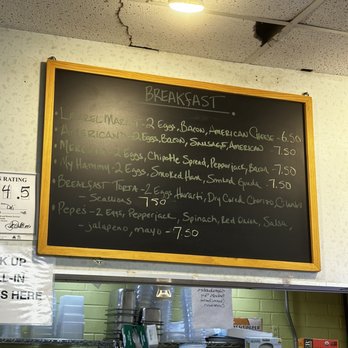 BREAKFAST
LAUREL MARKET - 2 Eggs, Bacon, AMERICAN CHEESE - 6.50
AMERICANO - 2 Eggs, Bacon, SAUSAGE, AMERICAN - 7.50
- 2 Eggs, Chipotle Spread, Pepperjack, Bacon - 7.50
My Hammy - 2 Eggs, Smoked Ham, Smoked Gouda - 7.50
BREAKFAST TORTA - 2 Eggs, Havarti, Dry Cured Chorizo,
- Scallions 7.50
Pepes - 2 Eggs, Pepperjack, Spinach, Red Onion, Salsa,
- Jalapeno, mayo - 7.50
RATING
4.5
K UP
LL-IN
S HERE